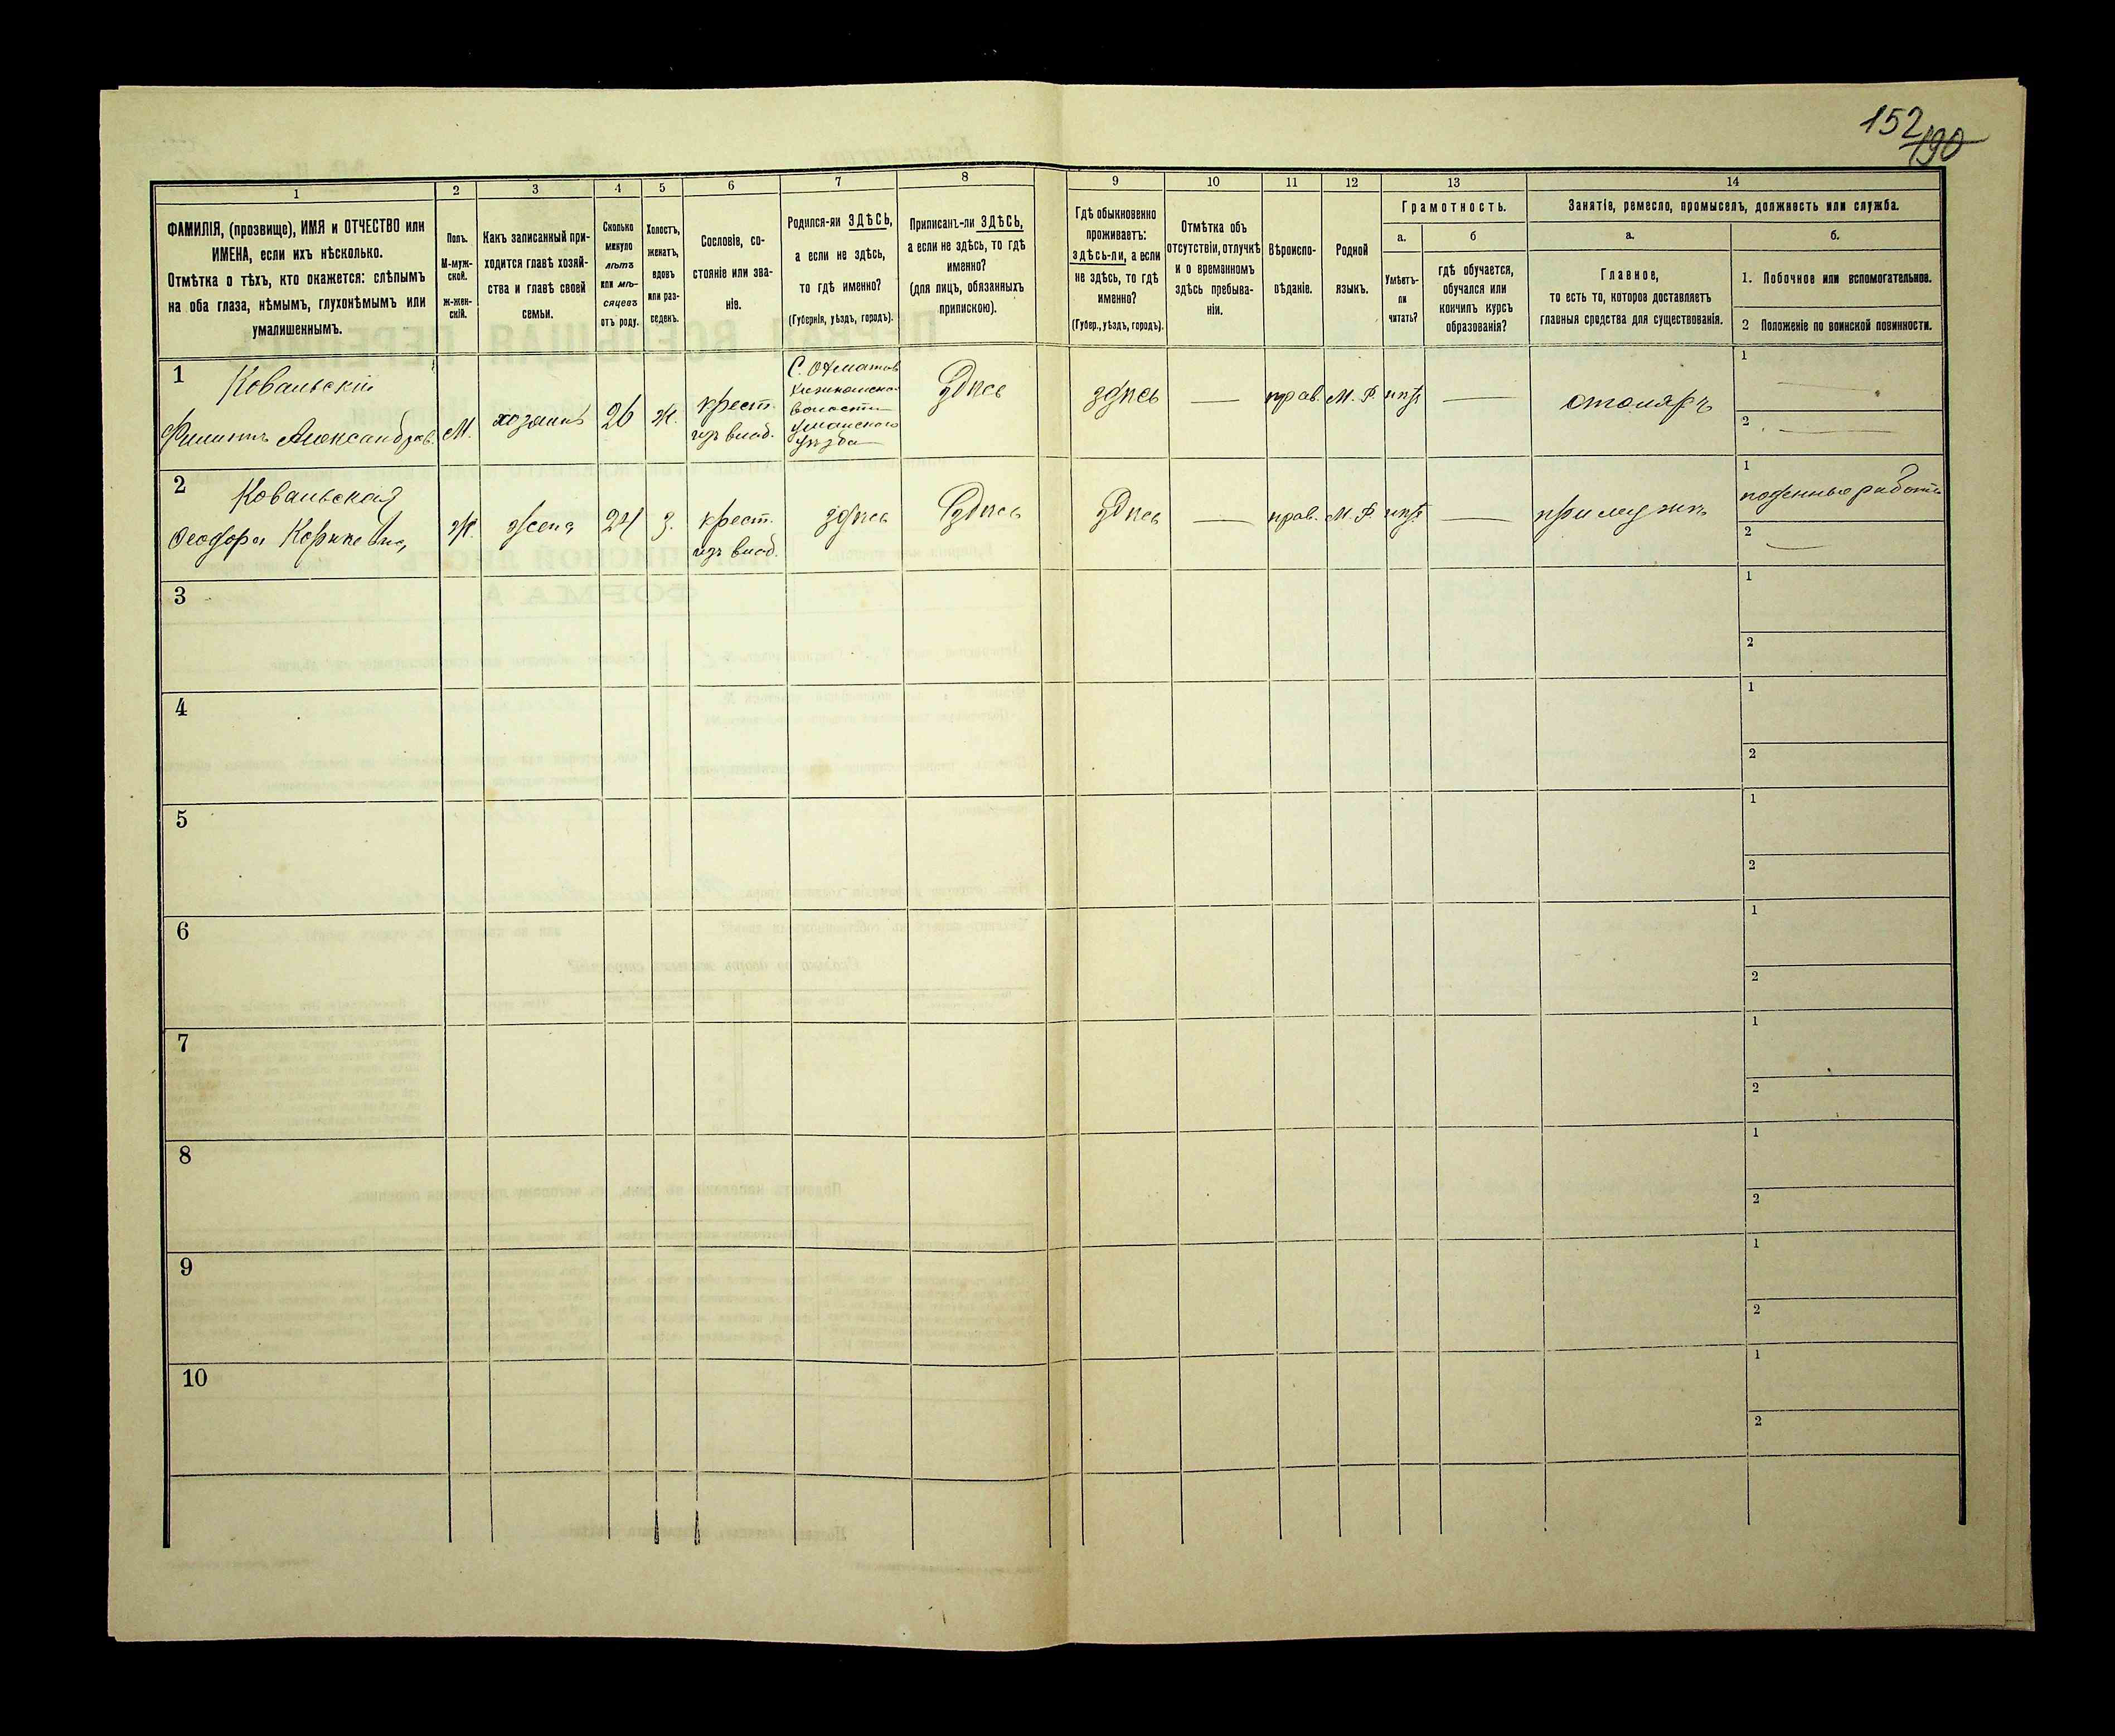 152
190
1
2
3
4
5
6
7
8
9
10
11
12
13
14
ФАМИЛІЯ, (прозвище), ИМЯ и ОТЧЕСТВО или
ИМЕНА, если ихъ нѣсколько.
Отмѣтка о тѣхъ, кто окажется: слѣпымъ
на оба глаза, нѣмымъ, глухонѣмымъ или
умалишеннымъ.
Полъ.
М-муж-
ской.
ж-жен-
скій.
Какъ записанный при-
ходится главѣ хозяй-
ства и главѣ своей
семьи.
Сколько
минуло
лѣтъ
или мѣ-
сяцевъ
отъ роду.
Холостъ,
женатъ,
вдовъ
или раз-
веденъ.
Сословіе, со-
стояніе или зва-
ніе.
Родился-ли ЗДѢСЬ,
а если не здѣсь,
то гдѣ именно?
(Губернія, уѣздъ, городъ).
Приписанъ-ли ЗДѢСЬ,
а если не здѣсь, то гдѣ
именно?
(для лицъ, обязанныхъ
припискою).
Гдѣ обыкновенно
проживаетъ:
здѣсь-ли, а если
не здѣсь, то гдѣ
именно?
(Губер., уѣздъ, городъ).
Отмѣтка объ
отсутствіи, отлучкѣ
и о временномъ
здѣсь пребыва-
ніи.
Вѣроиспо-
вѣданіе.
Родной
языкъ.
Грамотность.
а.
Умѣетъ-
ли
читать?
б
гдѣ обучается,
обучался или
кончилъ курсъ
образованія?
Занятіе, ремесло, промыселъ, должность или служба.
а.
Главное,
то есть то, которое доставляетъ
главныя средства для существованія.
б.
1. Побочное или вспомогательное.
2 Положеніе по воинской повинности.
1
Ковальскій
Филиппъ Александров.
М.
хозяинъ
26
ж.
крест.
изъ влад.
С. Охматов
волости
уманского
уѣзда
здѣсь
здѣсь
—
прав.
М. Р.
нѣтъ
—
столяръ
1
—
2
—
2
Ковальская
Феодора
ж.
жена
24
З.
крест.
изъ влад.
здѣсь
здѣсь
здѣсь
—
прав.
М. Р.
нѣтъ
—
при мужѣ
1
2
—
3
1
2
4
1
2
5
1
2
6
1
2
7
1
2
8
1
2
9
1
2
10
1
2